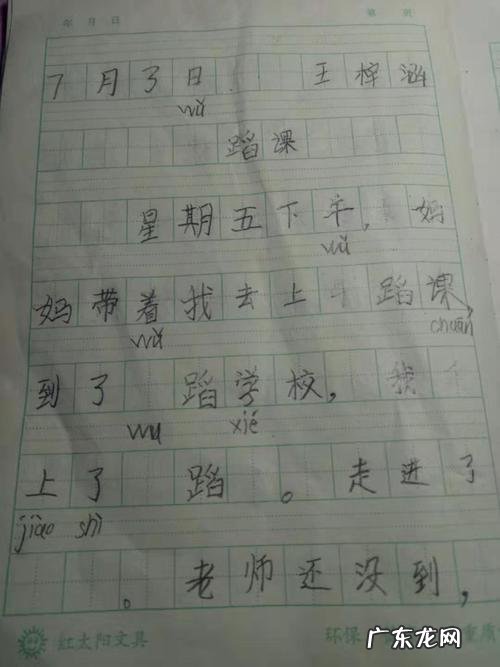 年 月 日 第 班
7月3日 王梓涵
wǔ
蹈课
星期五下午，妈
wǔ
妈带着我去上 蹈课，
wǔ chuān
到了 蹈学校，我
wu xié
上了 蹈 。走进了
jiào shì
。老师还没到，
红太阳文具 环保
广东龙网